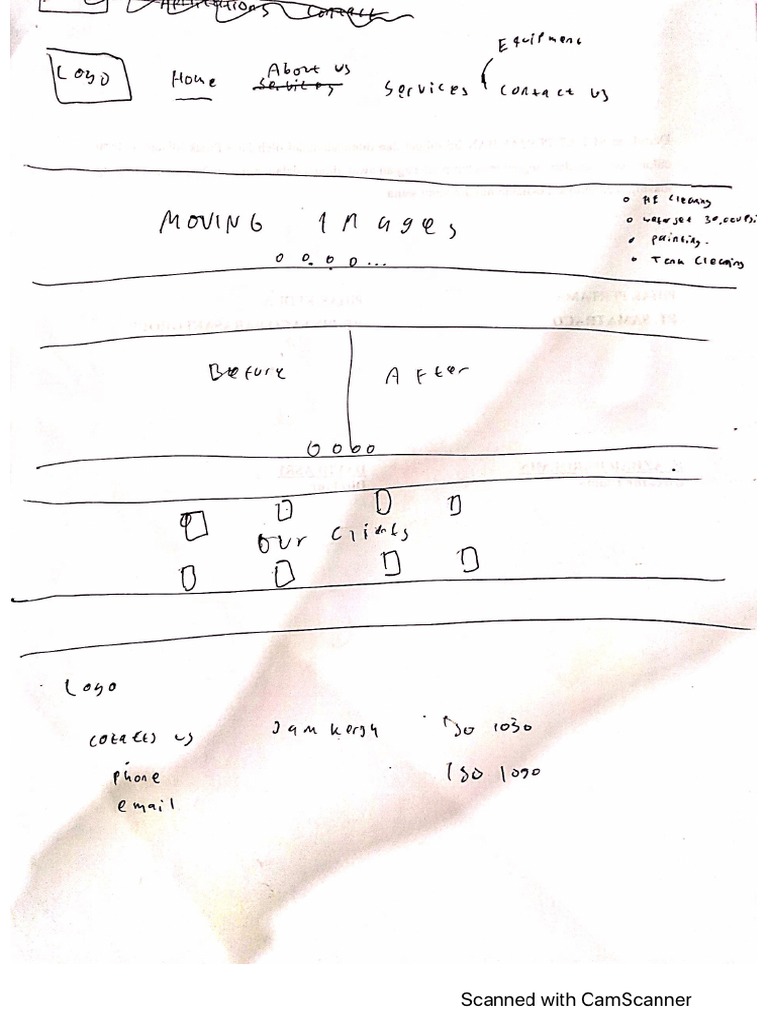 Contact
Equipment
Logo Home About us Services Contact us
Services
MOVING Images
HE Cleaning
Waterjet
Painting.
Tank Cleaning
Before After
Our Clients
Logo
Jam kerja ISO 1030
us
phone ISO 1090
email
Scanned with CamScanner